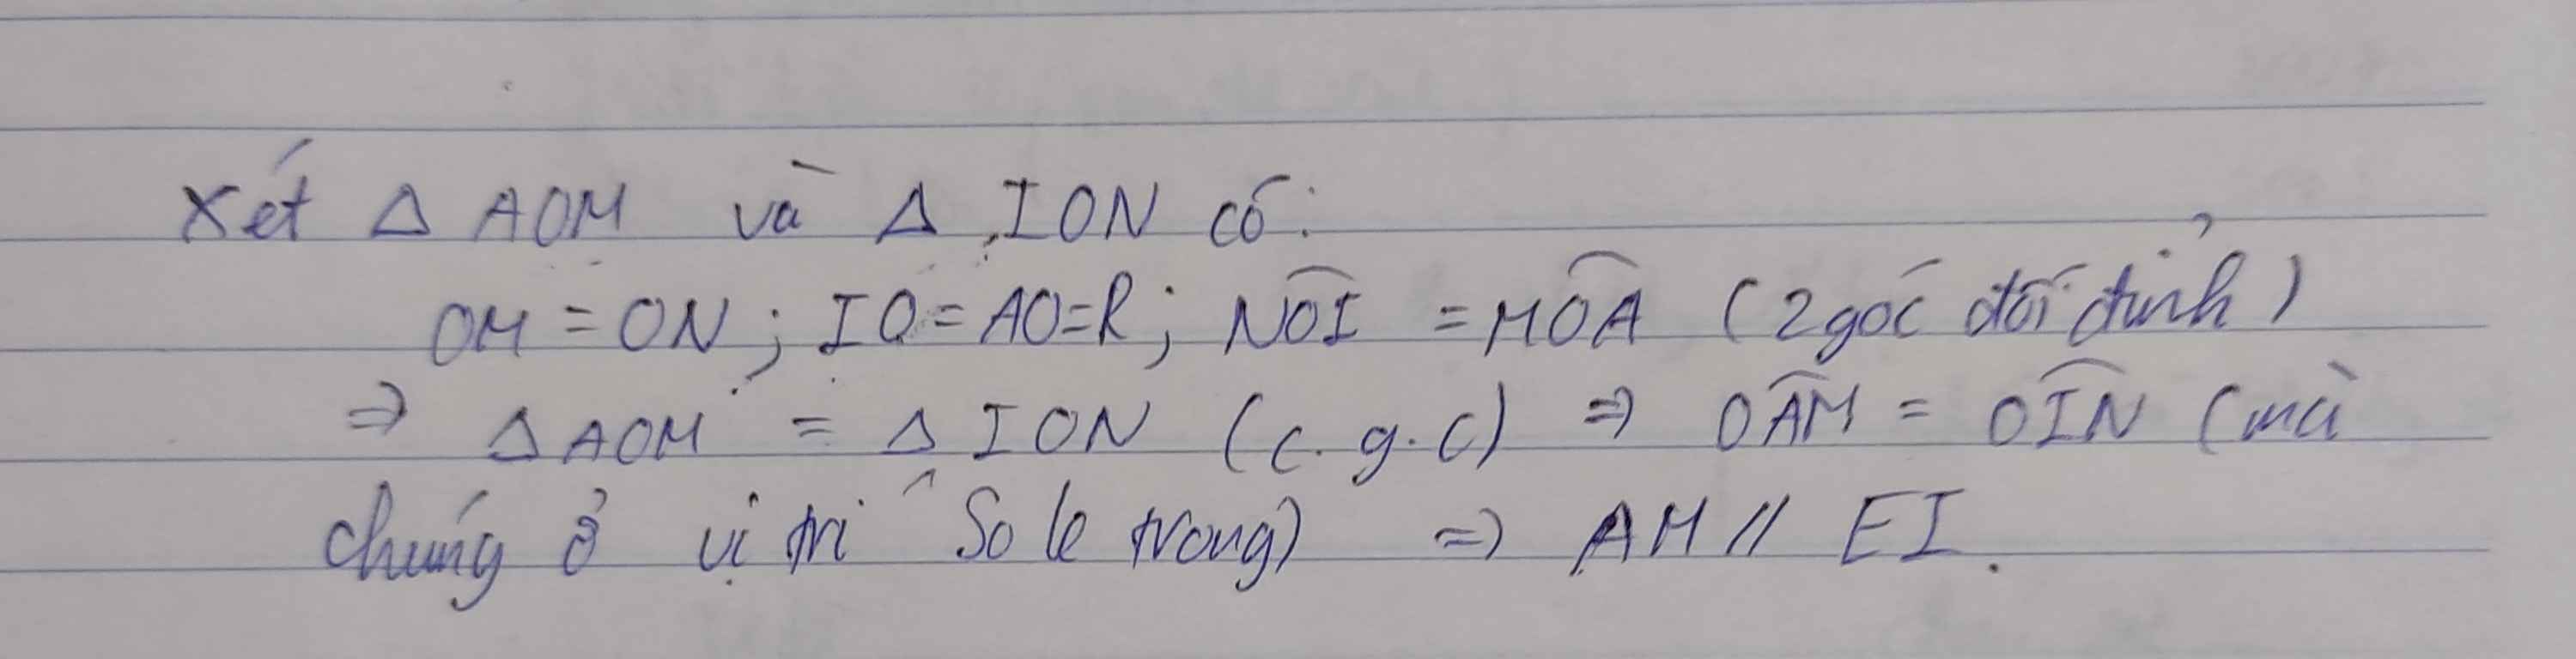 Xét Δ AOM và Δ ION có:
OM = ON ; IO = AO = R ; \widehat{NOI} = \widehat{MOA} (2 góc đối đỉnh)
⇒ Δ AOM = Δ ION (c.g.c) ⇒ \widehat{OAM} = \widehat{OIN} (mà
chúng ở vị trí So le trong) ⇒ AM // EI.